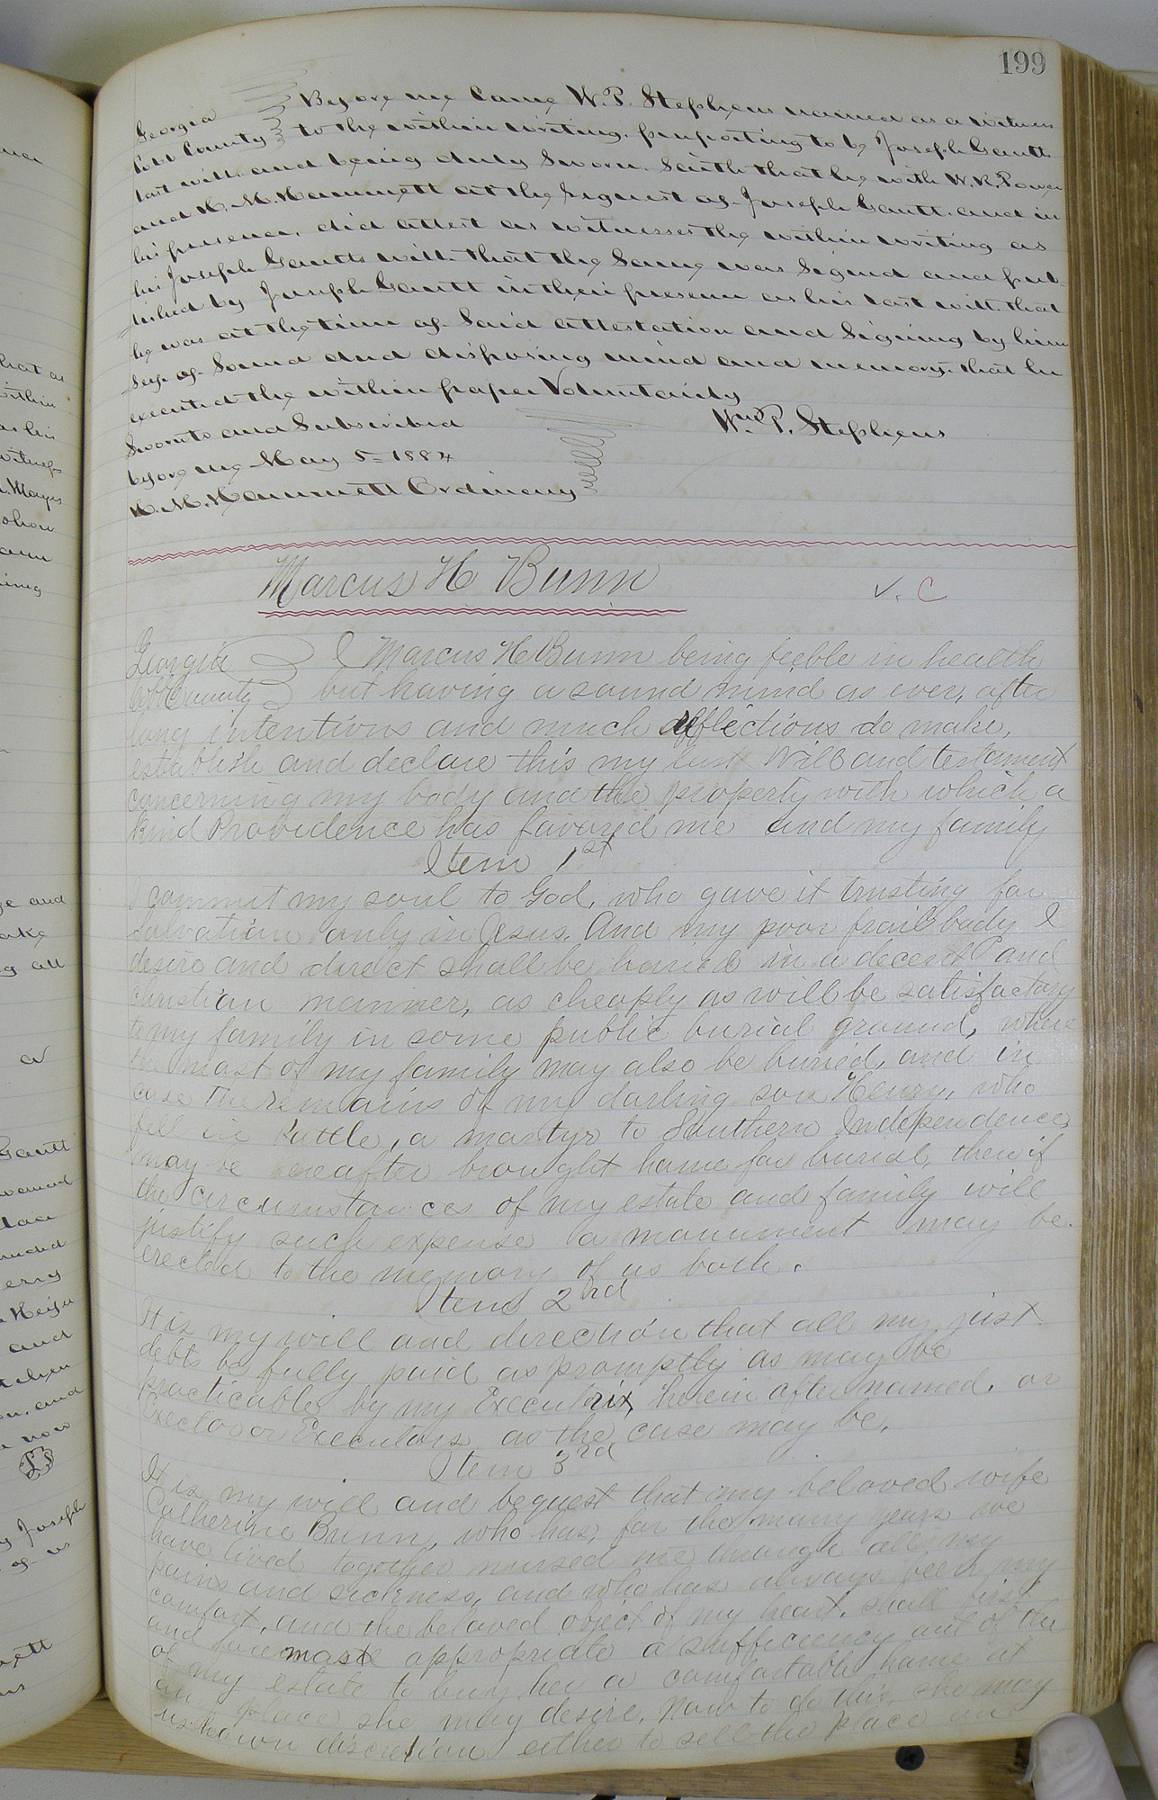 199
Georgia Before me came W. P. Stephens named as a witness
Cobb County to the within writing, purporting to be Joseph Gantts
last will and being duly sworn. Saith that he with W. R. Power
and H. M. Hammett at the request of Joseph Gantt. and in
his presence, did attest as witnesses the within writing as
his Joseph Gantts will. that the same was signed and pub-
lished by Joseph Gantt in their presence as his last will. that
he was at the time of said attestation and signing by him
self of sound and disposing mind and memory. that he
executed the within paper Voluntarily
Sworn to and Subscribed Wm P. Stephens
before me May 5= 1884
H. M. Hammett Ordinary
Marcus H Bunn
v. C
Georgia I Marcus H Bunn being feeble in health
Cobb County but having a sound mind as ever, after
long intentions and much reflections do make,
establish and declare this my last Will and testament
concerning my body and the property with which a
Kind Providence has favored me and my family
Item 1st
I commit my soul to God, who gave it trusting for
Salvation only in Jesus. And my poor frail body I
desire and direct shall be buried in a decent and
christian manner, as cheaply as will be satisfactory
to my family in some public burial ground, where
the most of my family may also be buried, and in
case the remains of my darling son Henry, who
fell in battle, a martyr to Southern Independence,
may be hereafter brought home for burial, then if
the circumstances of my estate and family will
justify such expense a monument may be
erected to the memory of us both.
Item 2nd
It is my will and direction that all my just
debts be fully paid as promptly as may be
practicable, by my Executrix herein after named, or
Exector or Executors as the case may be.
Item 3rd
It is my will and bequest that my beloved wife
Catherine Bunn, who has, for the many years we
have lived together nursed me through all my
pains and sickness, and who has always been my
comfort, and the beloved object of my heart, shall first
and foremost appropriate a sufficiency out of the
of my estate to buy her a comfortable home at
any place she may desire. Now to do this, she may
use her own discretion either to sell the place on